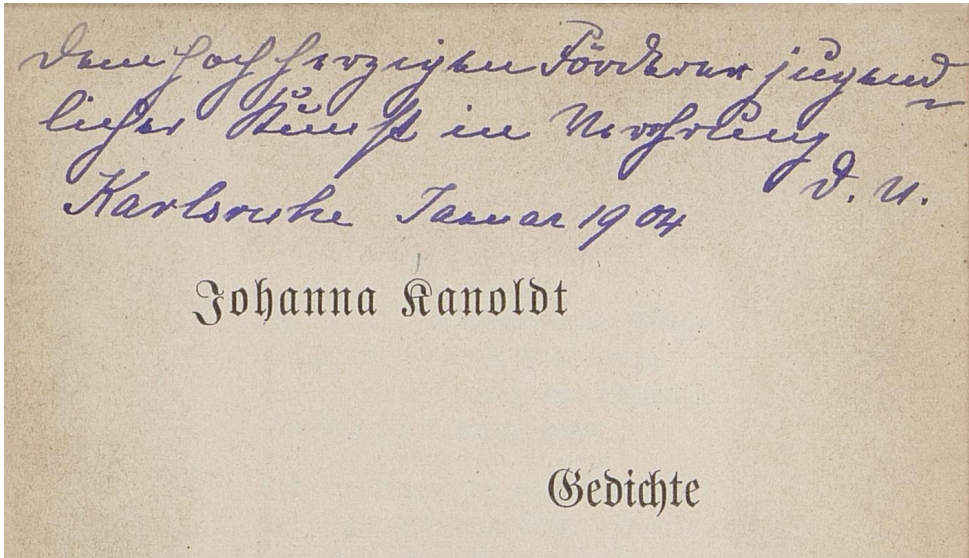 Dem hochherzigen Förderer jugend-
licher Kunst in Verehrung
D. V.
Karlsruhe Januar 1904
Johanna Kanoldt
Gedichte